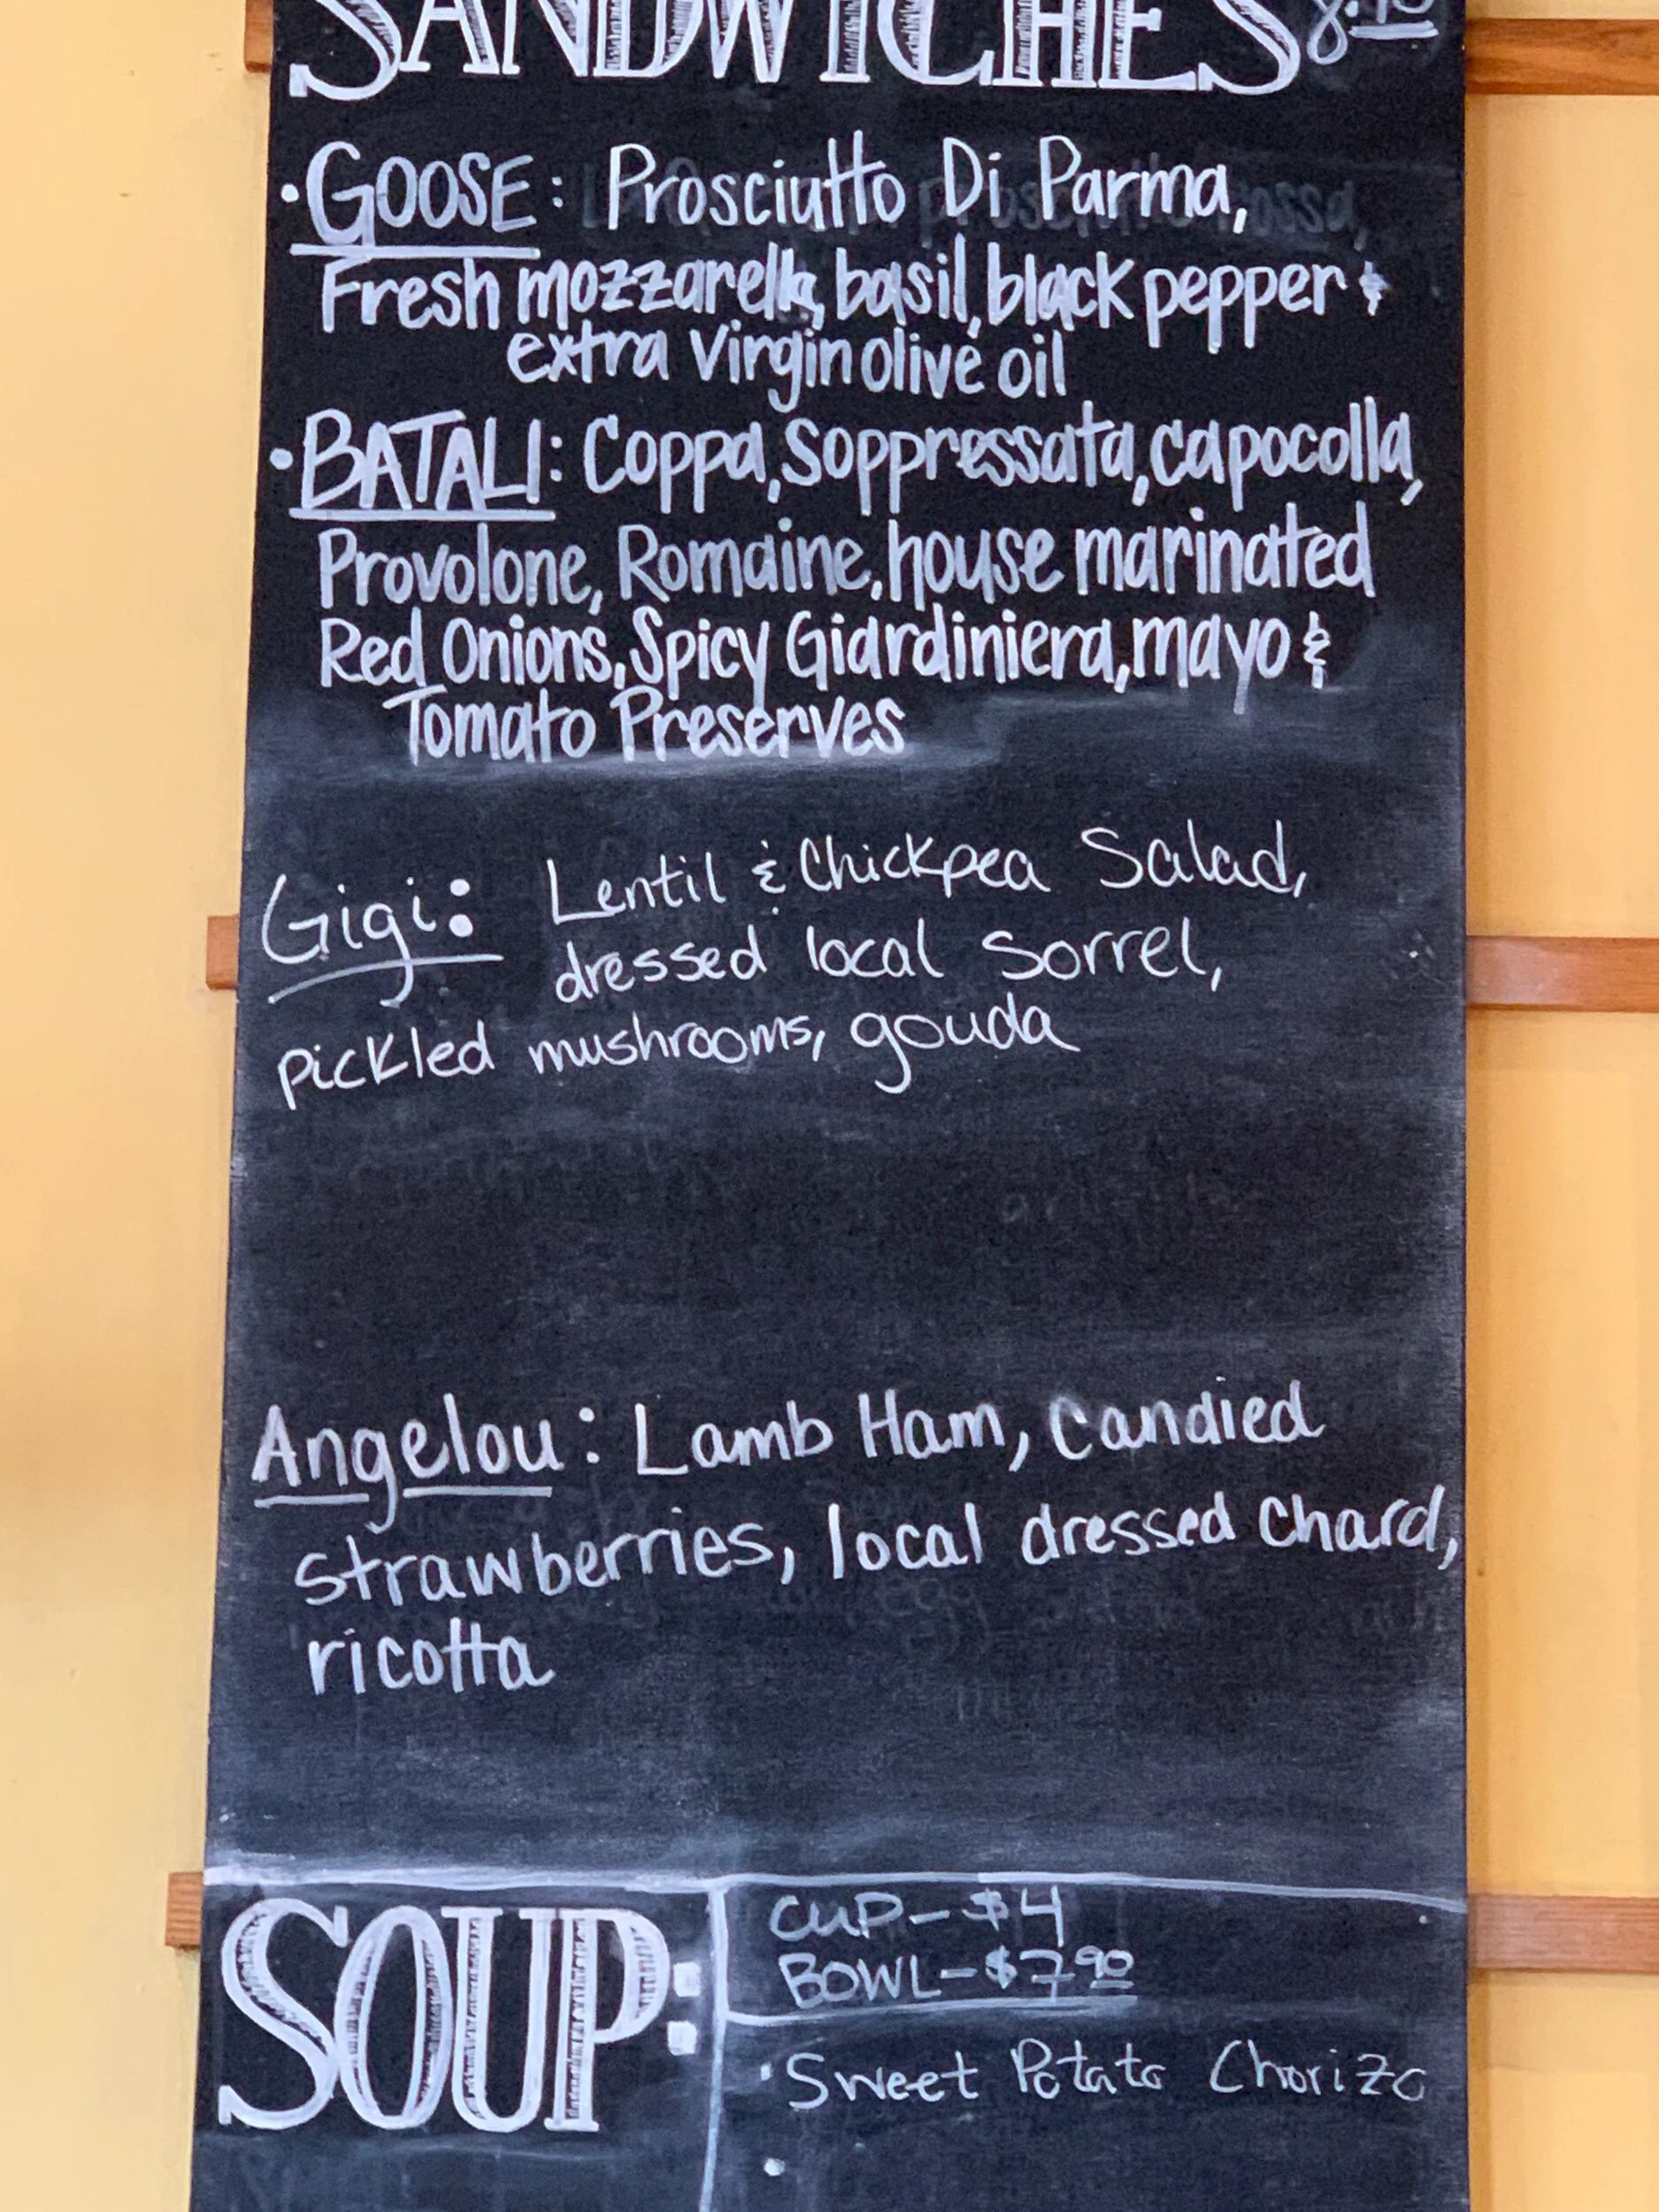 SANDWICHES
• GOOSE: Prosciutto Di Parma,
Fresh mozzarella, basil, black pepper &
extra virgin olive oil
• BATALI: Coppa, Soppressata, capocolla,
Provolone, Romaine, house marinated
Red Onions, Spicy Giardiniera, mayo &
Tomato Preserves
Gigi: Lentil & Chickpea Salad,
dressed local sorrel,
pickled mushrooms, gouda
Angelou: Lamb Ham, candied
strawberries, local dressed chard,
ricotta
SOUP:
CUP – $4
BOWL – $7.90
• Sweet Potato Chorizo
•